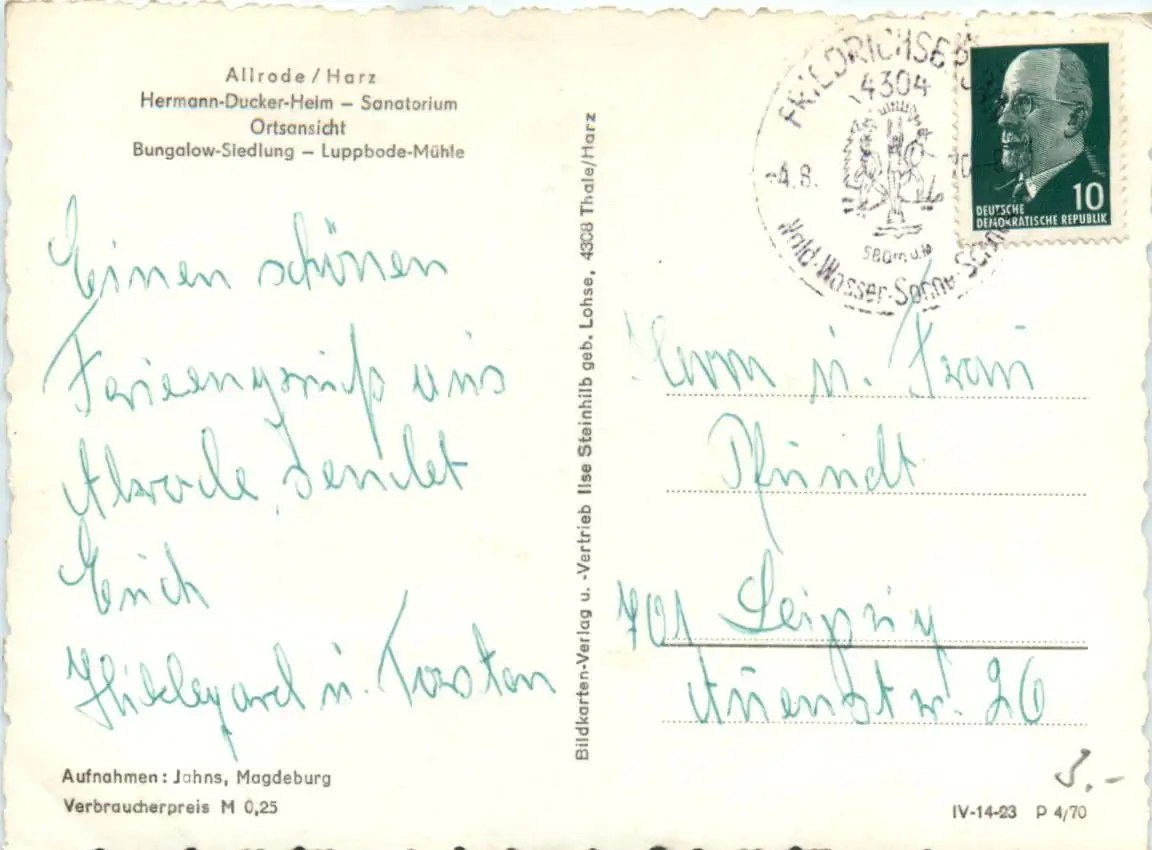 Allrode / Harz
Hermann-Ducker-Heim – Sanatorium
Ortsansicht
Bungalow-Siedlung – Luppbode-Mühle
Einen schönen
Feriengruß aus
Alrode, sendet
Erich
Hildegard u. Torsten
Aufnahmen: Jahns, Magdeburg
Verbraucherpreis M 0,25
Bildkarten-Verlag u. -Vertrieb Ilse Steinhilb geb. Lohse, 4308 Thale/Harz
FRIEDRICHSB
4304
-4.8.
580m ü.M
Wald-Wasser-Sonne-
10
DEUTSCHE
DEMOKRATISCHE REPUBLIK
Herrn u. Frau
Pfündt
701 Leipzig
Auenstr. 26
3.-
IV-14-23 P 4/70